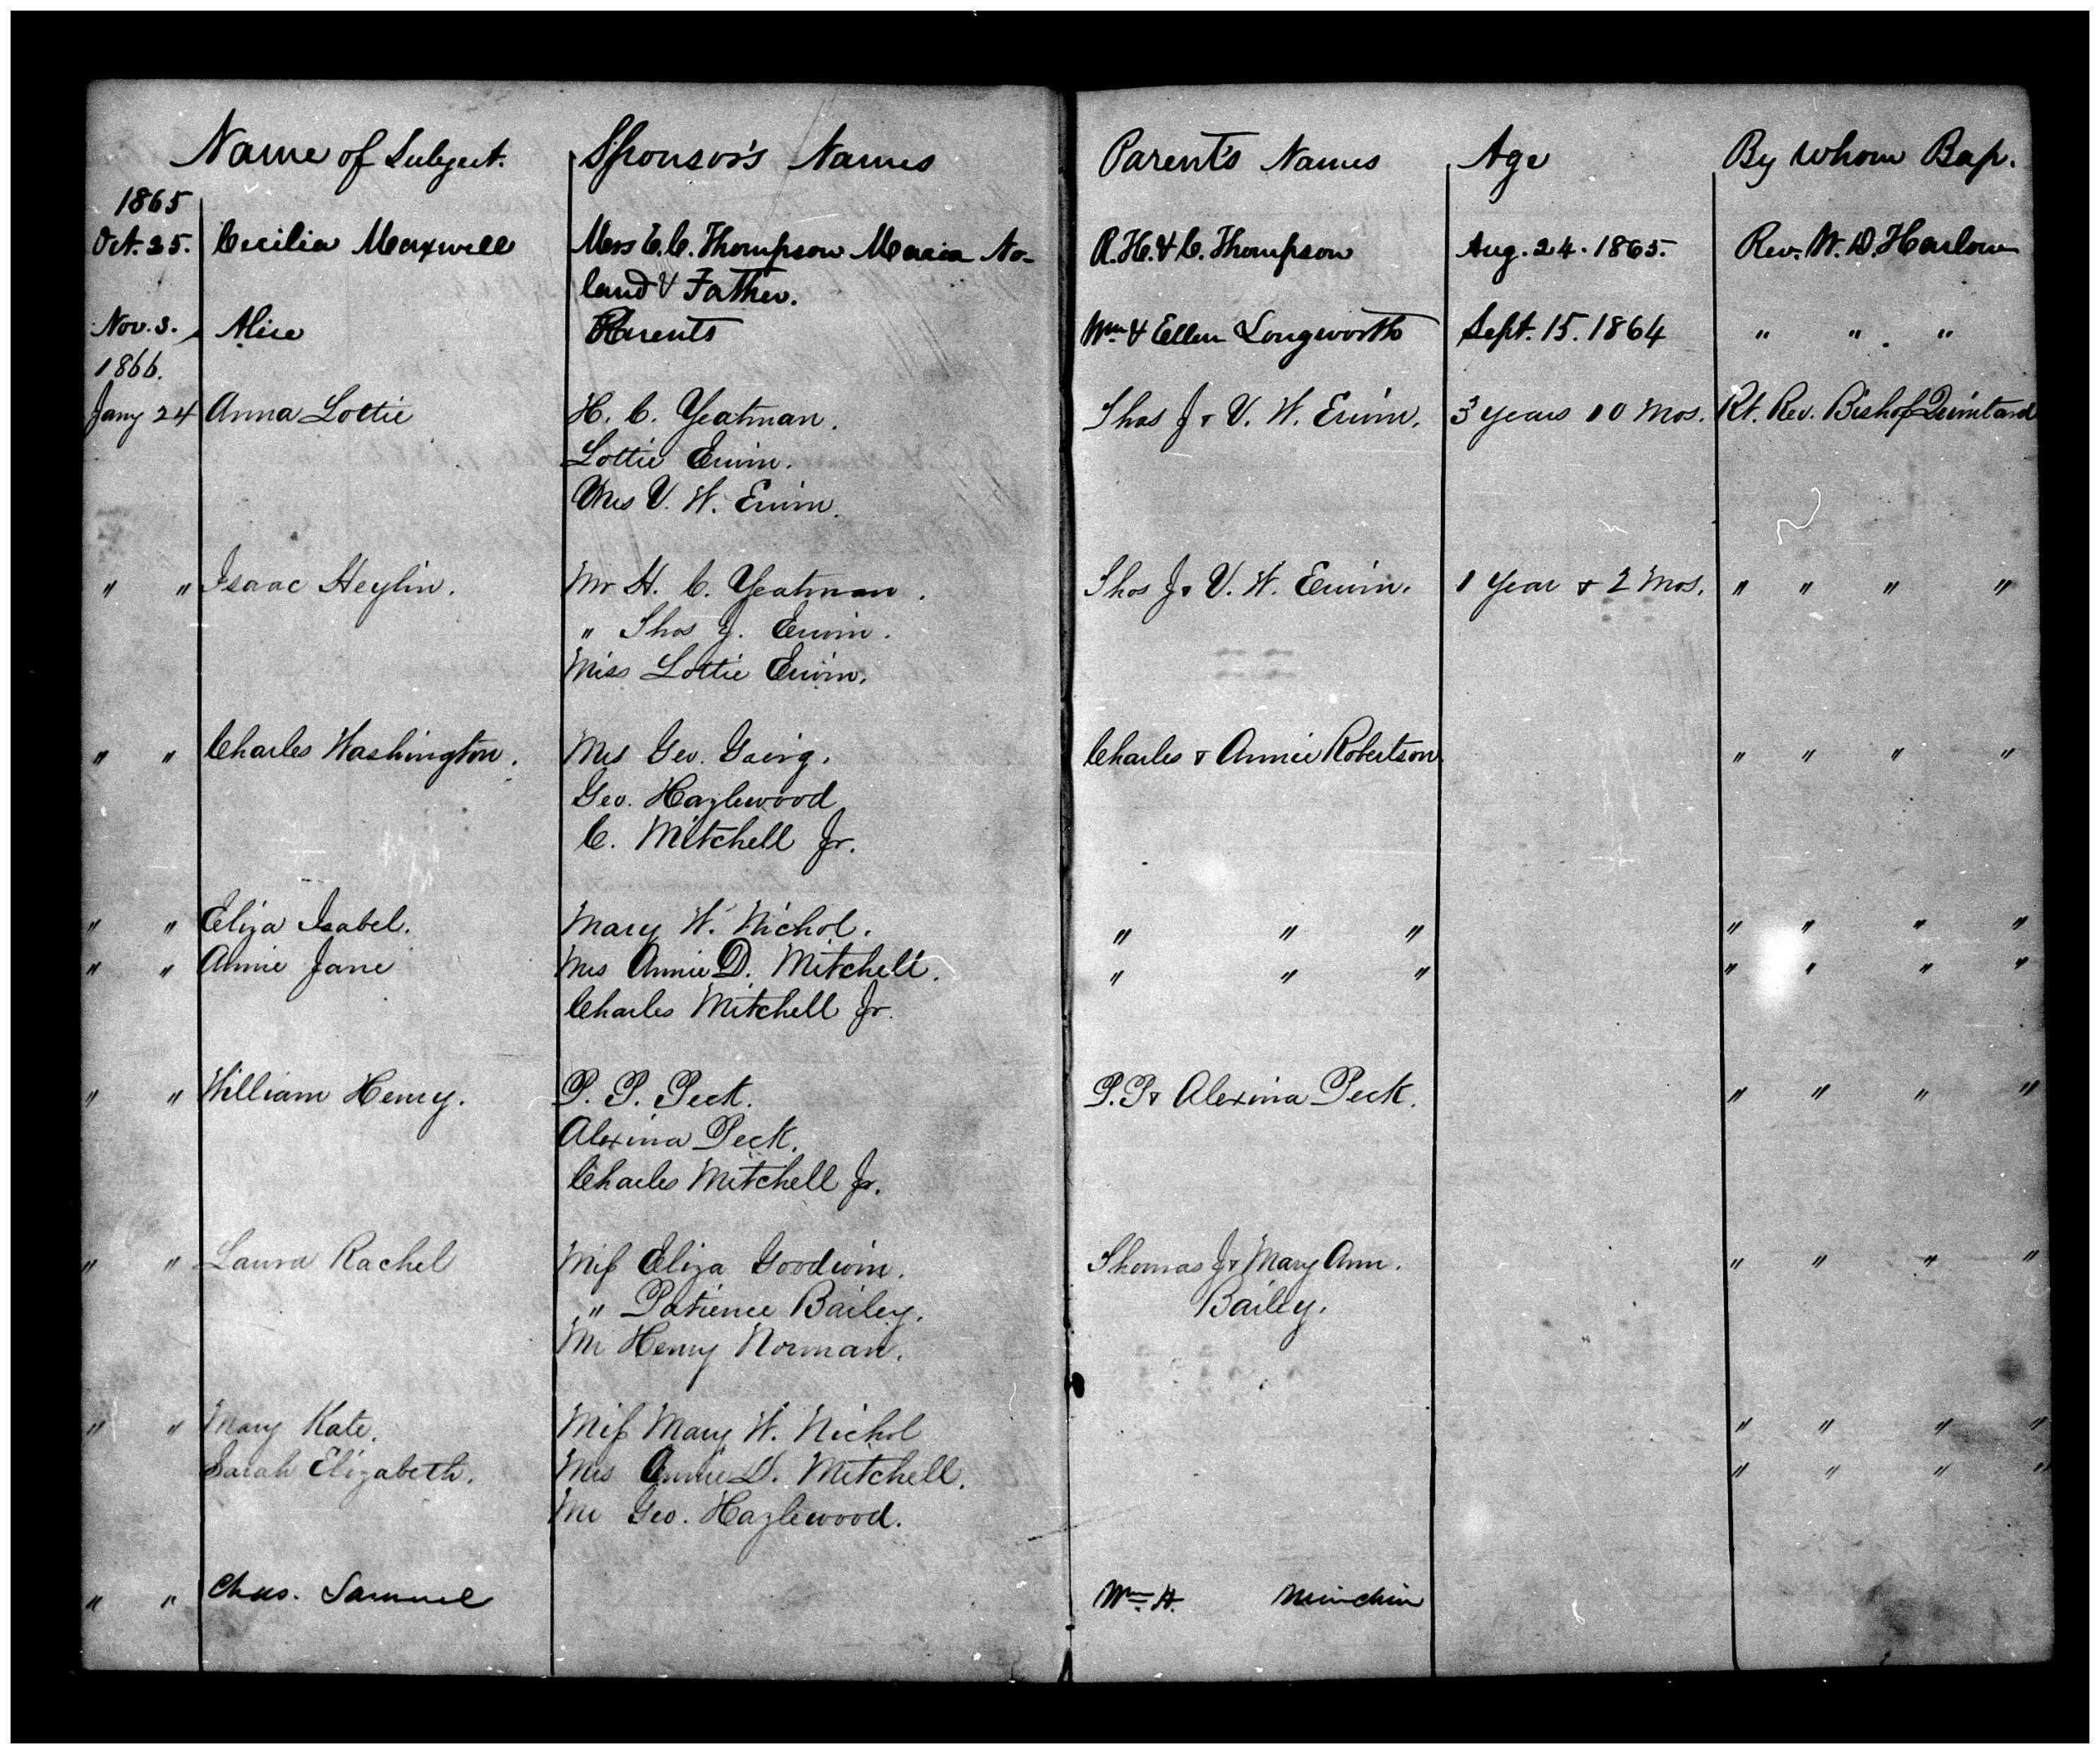 Name of Subject. Sponsor's Names Parent's Names Age By whom Bap.
1865
Oct. 25. Cecilia Maxwell Mrs E. C. Thompson Maria No- R. H. & C. Thompson Aug. 24. 1865. Rev. W. D. Harlow
land & Father.
Nov. 3. Alice Parents Wm & Ellen Longworth Sept. 15. 1864 " " "
1866.
Jany 24 Anna Lottie H. C. Yeatman. Thos J & V. W. Erwin. 3 years 10 Mos. Rt. Rev. Bishop Quintard
Lottie Erwin.
Mrs V. W. Erwin.
" " Isaac Heylin. Mr H. C. Yeatman. Thos J & V. W. Erwin. 1 Year & 2 Mos. " " " "
" Thos J. Erwin.
Miss Lottie Erwin.
" " Charles Washington. Mrs Geo. Charles & Annie Robertson " " " "
Geo. Hazlewood
C. Mitchell Jr.
" " Eliza Isabel. Mary W. Nichol. " " " " " " "
" " Annie Jane Mrs Annie D. Mitchell. " " " " " " "
Charles Mitchell Jr.
" " William Henry. P. P. Peck. P. P & Alexina Peck. " " " "
Alexina Peck.
Charles Mitchell Jr.
" " Laura Rachel Miss Eliza Goodwin. Thomas J & Mary Ann. " " " "
" Patience Bailey. Bailey.
Mr Henry Norman.
" " Mary Kate. Miss Mary W. Nichol " " " "
Sarah Elizabeth. Mrs Annie D. Mitchell. " " " "
Mr Geo. Hazlewood.
" " Chas. Samuel Wm H. Minchin